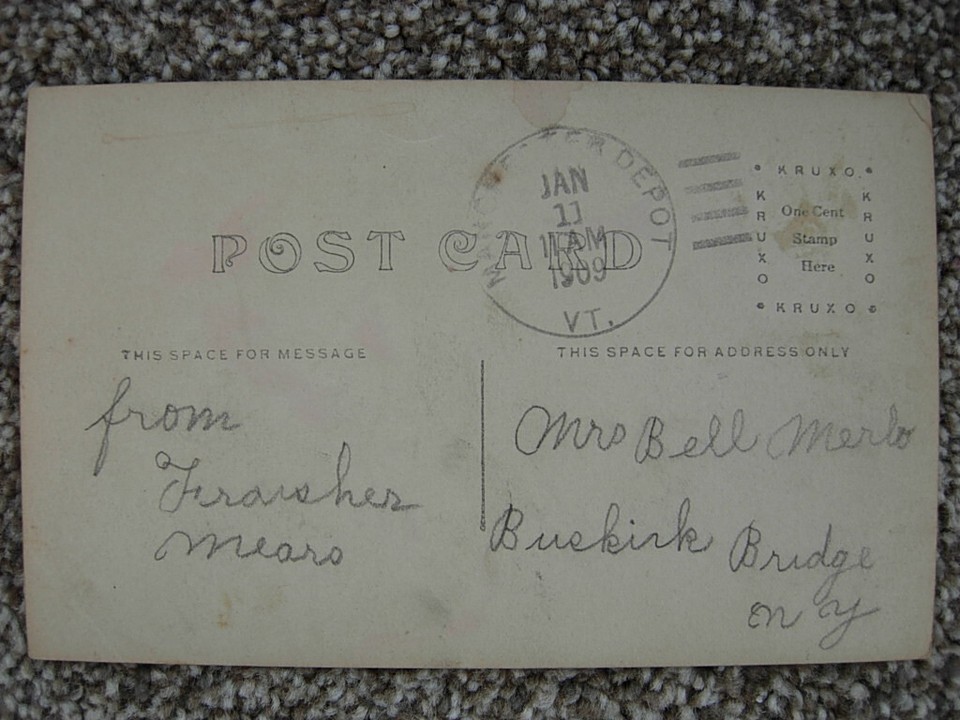 DEPOT
JAN
11
AM
1909
VT.
KRUXO
KRUXO
One Cent
Stamp
Here
KRUXO
KRUXO
POST CARD
THIS SPACE FOR MESSAGE
THIS SPACE FOR ADDRESS ONLY
from
Mears
Mrs Bell Merlo
Buskirk Bridge
N Y